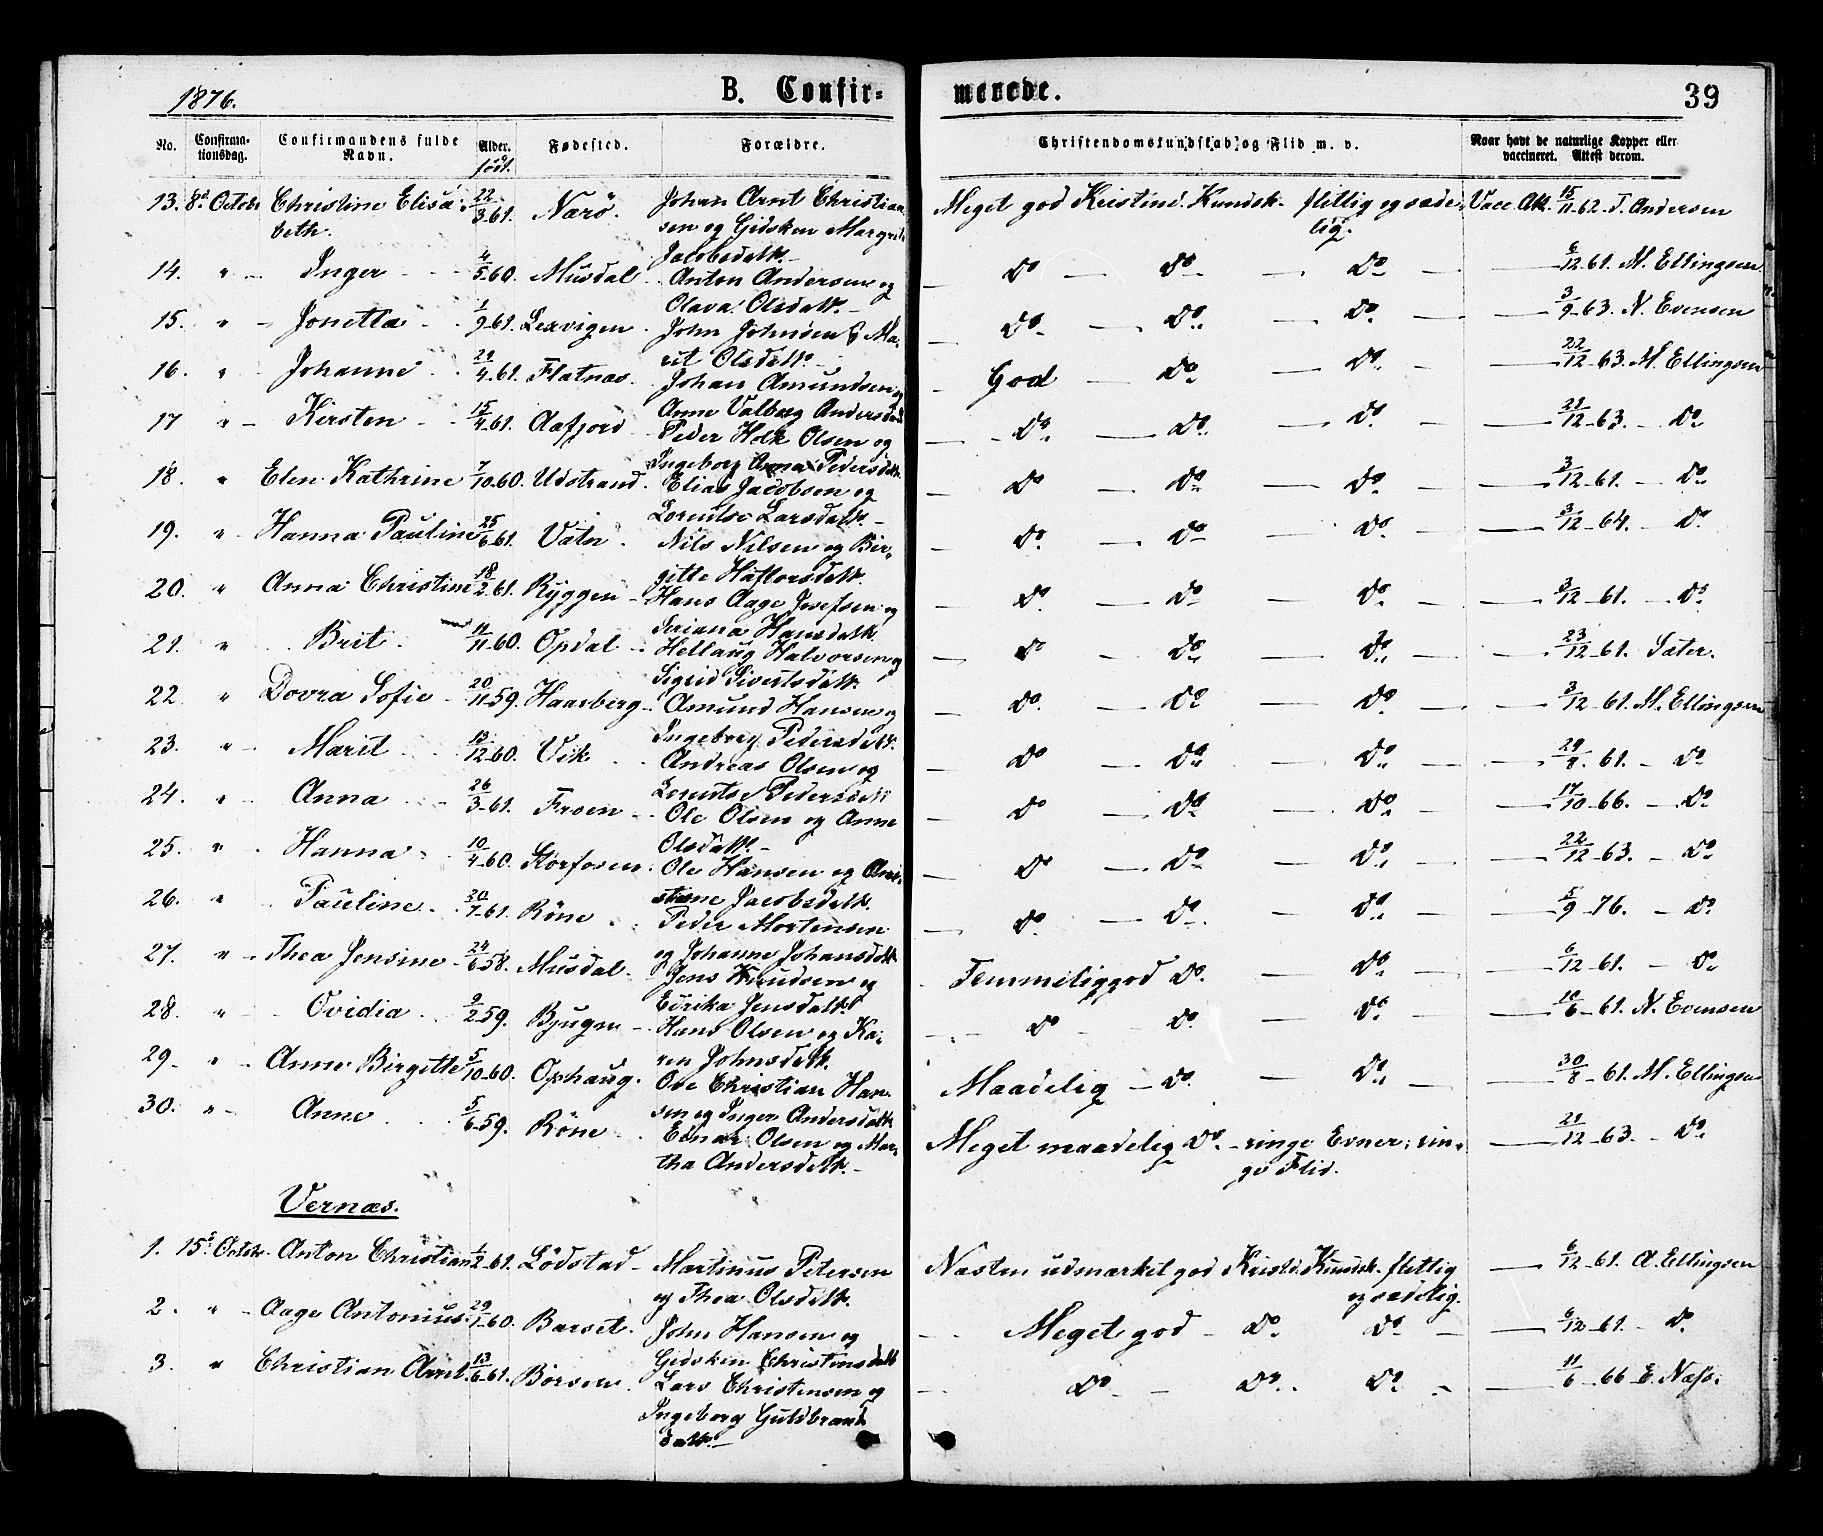 1876.
B. Confir-
merede.
39
No. Confirma-tionsdag. Confirmandens fulde Navn. Alder. født. Fødested. Forældre. Christendomskundskab og Flid m. v. Naar havt de naturlige Kopper eller vaccineret. Attest derom.
13. 8d Octobr Christine Elisa- 22/3 61. Nærö. Johan Arnt Christian Meget god Kristend. Kundsk. flittig og sæde- Vacc. Att. 15/11-62. T. Andersen
beth. sen og Gidsken Margrete lig.
Jacobsdatt.
14. " Inger 4/5 60. Musdal Anton Andersen og do do do 6/12 61. M. Ellingsen
Olava Olsdatt.
15. " Jonetta 1/9 61. Lexvigen John Johnsen & Ma- do do do 3/9 63. N. Evensen
rit Olsdatt.
16. " Johanne 29/4 61. Flatnæs. Johan Amundsen og God do do 22/12 63 M. Ellingsen
Anne Valborg Andersdatt
17 " Kirsten 15/4 61. Aafjord Peder Holk Olsen og do do do 21/12 63. do
Ingeborg Anna Pedersdatt.
18. " Elen Kathrine 7/10 60. Udstrand. Elias Jacobsen og do do do 3/12 61. do
Lorentse Larsdatt.
19. " Hanna Pauline 25/6 61. Vatn. Nils Nilsen og Bir- do do do 3/12 64. do
gitte Haftorsdatt.
20. " Anna Christine 18/2 61. Ryggen Hans Aage Josefsen og do do do 3/12 61. do
Hansdatt.
21. " Brit 11/11 60. Opdal Hellaug Halvorsen og do do do 23/12 61. Sæter.
Sigrid Sivertsdatt.
22. " Dovra Sofie 20/11 59. Haarberg Amund Hansen og do do do 3/12 61. M. Ellingsen
Ingeborg Pedersdatt.
23. " Marit 13/12 60. Vik Andreas Olsen og do do do 29/8 61. do
Lorentse Pedersdatt
24. " Anna 26/3 61. Froen Ole Olsen og Anne do do do 17/10 66. do
Olsdatt.
25. " Hanna 10/4 60. Storfosen. Ole Hansen og do do do 22/12 63. do
Jacobsdatt.
26. " Pauline 30/7 61. Röne Peder Mortensen do do do 5/9 76. do
og Johanne Johansdatt
27. " Thea Jensine 24/6 58. Musdal Jens Knudsen og Temmelig god do do 6/12 61. do
Edrika Jensdatt.
28. " Ovidia 9/2 59. Bjugn Hans Olsen og Ka- do do do 10/6 61. N. Evensen
ren Johnsdatt.
29. " Anne Birgitte 5/10 60. Ophaug. Ove Christian Han- Maadelig do do 30/8 61. M. Ellingsen
sen og Inger Andersdatt
30. " Anne 5/6 59. Röne Einar Olsen og Mar- Meget maadelig do ringe Evner, rin- 21/12 63. do
tha Andersdatt. ge Flid.
Vernæs.
1. 15d Octobr. Anton Christian 1/2 61. Lödstad Martinus Petersen Næsten udmærket god Kristd. Kundsk. flittig 6/12 61. A. Ellingsen
og Thea Olsdatt. og sædelig.
2. " Aage Antonius 29/1 60. Barset. John Hansen og Meget god do do 6/12 61. do
Gidsken Christensdatt
3. " Christian Arnt. 13/6 61. Börsen Lars Christensen og do do do 11/6 66 E. Næss.
Ingeborg Guldbrands
datt.